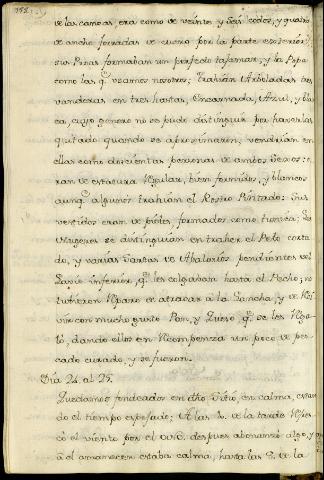 de las canoas, era como de veinte, y seis codos, y quatro
de ancho forradas de cuero por la parte exterior,
sus Proas formaban un perfecto tajamar, y la Popa
como las q.e usamos nosotros; Trahían Arboladas tres
vanderas en tres hastas, Encarnada, Azul, y blan
ca, cuyo genero no se pudo distinguir por haverlas
quitado quando se aproximaron, vendrían en
ellas como doscientas personas de ambos Sexos: e
ran de estatura Regular, bien formados, y blancos
aunq.e algunos trahían el Rostro Pintado: Sus
vestidos eran de pieles, formados como tunica: Las
Mugeres se distinguian en traher el Pelo corta
do, y varias sartas de Abalorios pendientes del
Lavio inferior, q.e les colgaban hasta el Pecho; no
tubieron Reparo en atracar á la Lancha, y de Reci
vir con mucho gusto Pan, y Queso q.e se les Rega
ló, dando ellos en Recompenza un poco de pes
cado curado, y se fueron.
Dia 24. al 25.
Quedamos fondeados en dho Sitio, en calma, estan
do el tiempo espejado; A las de la tarde Refres
có el viento por el despues abonanzó algo, y
á el amanecer estaba calma, hasta las 8. de la